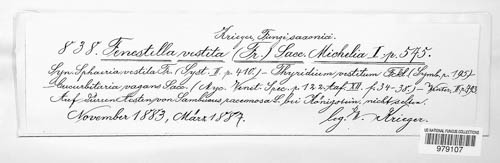 Krieger, Fungi saxonici.
838. Fenestella vestita (Fr.) Sacc. Michelia I. p. 575.
Syn. Sphaeria vestita Fr. (Syst. II. p. 410.) – Thyridium vestitum Fckl. (Symb. p. 195) –
Cucurbitaria vagans Sacc. (Myc. Venet. Spec. p. 122 taf. XII. f. 34-38.) – Winter, II. p. 793
Auf dürren Aesten von Sambucus racemosa L. bei Königstein, nicht selten.
November 1883, März 1887. leg. W. Krieger.
US NATIONAL FUNGUS COLLECTIONS
979107